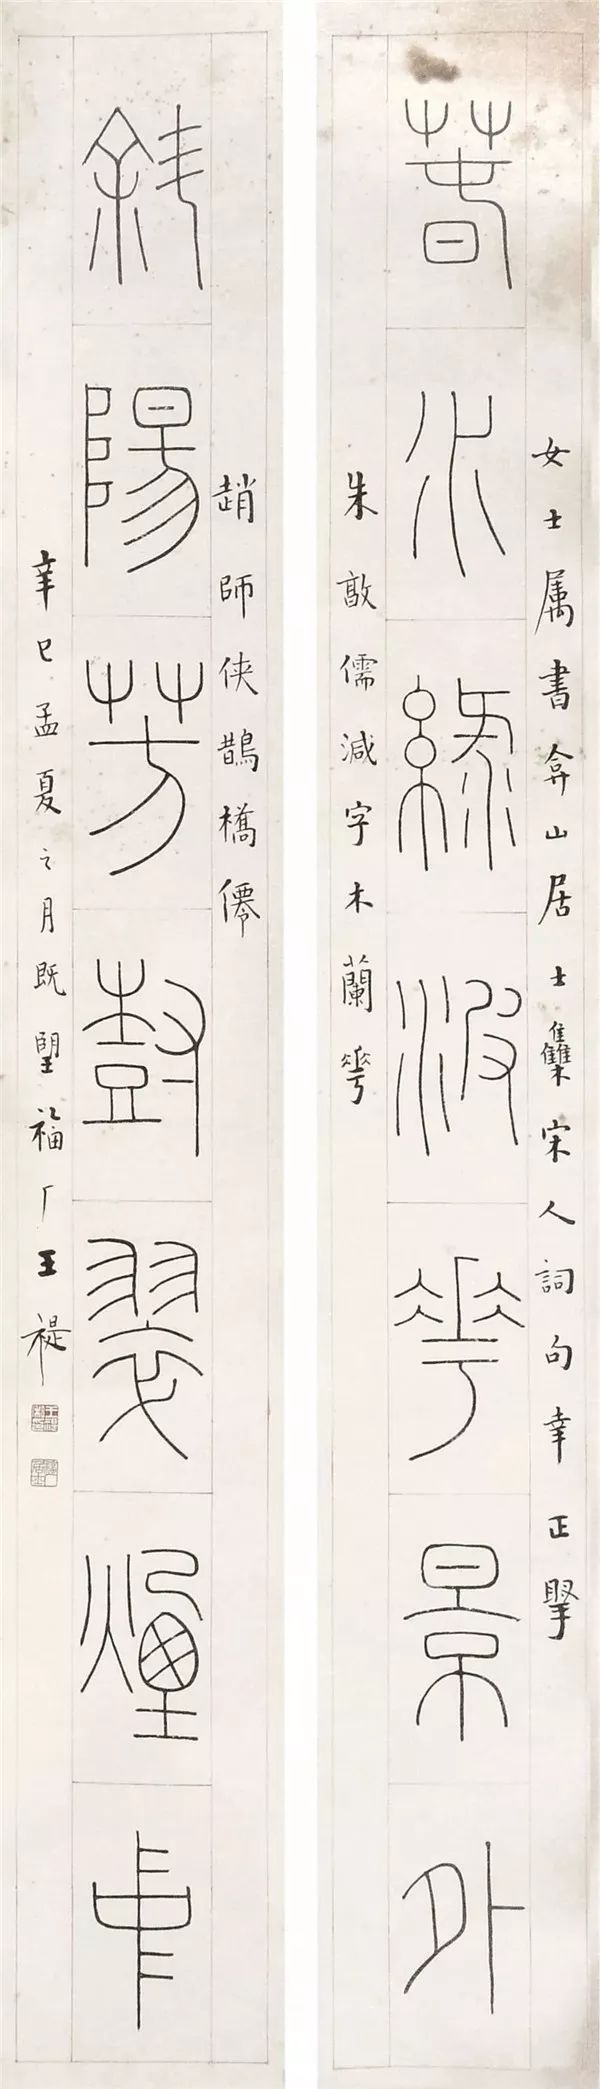 女士属書弇山居士雧宋人詞句幸正掔
春水綠波花景外
朱敦儒減字木蘭花
趙師侠鵲橋僊
斜陽芳樹翠煙中
辛巳孟夏之月既望福厂王禔